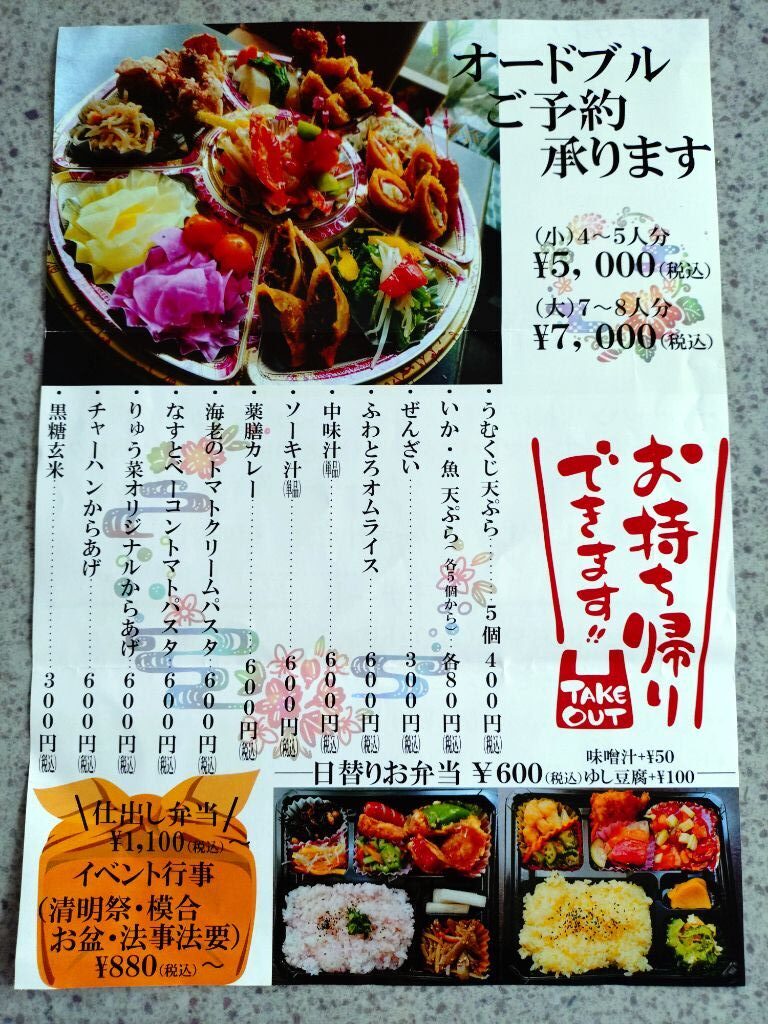 オードブル
ご予約
承ります
(小)4〜5人分
¥5,000(税込)
(大)7〜8人分
¥7,000(税込)
・うむくじ天ぷら……5個400円(税込)
・いか・魚 天ぷら(各5個から)各80円(税込)
・ぜんざい……300円(税込)
・ふわとろオムライス……600円(税込)
・中味汁(単品)……600円(税込)
・ソーキ汁(単品)……600円(税込)
・薬膳カレー……600円(税込)
・海老のトマトクリームパスタ…600円(税込)
・なすとベーコントマトパスタ…600円(税込)
・りゅう菜オリジナルからあげ 600円(税込)
・チャーハンからあげ……600円(税込)
・黒糖玄米……300円(税込)
お持ち帰り
できます!!
TAKE
OUT
日替りお弁当 ¥600(税込)
味噌汁+¥50
ゆし豆腐+¥100
仕出し弁当
¥1,100(税込)〜
イベント行事
(清明祭・模合
お盆・法事法要)
¥880(税込)〜